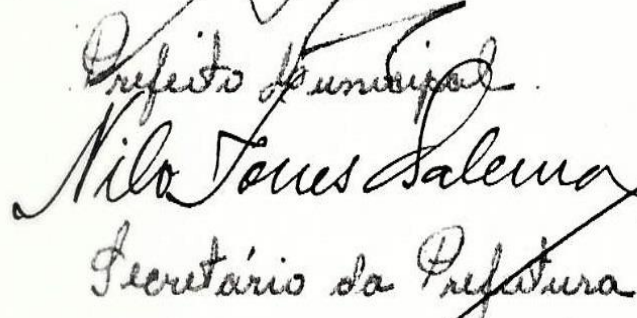 Prefeito Municipal.
Nilo Torres Salerma
Secretário da Prefeitura